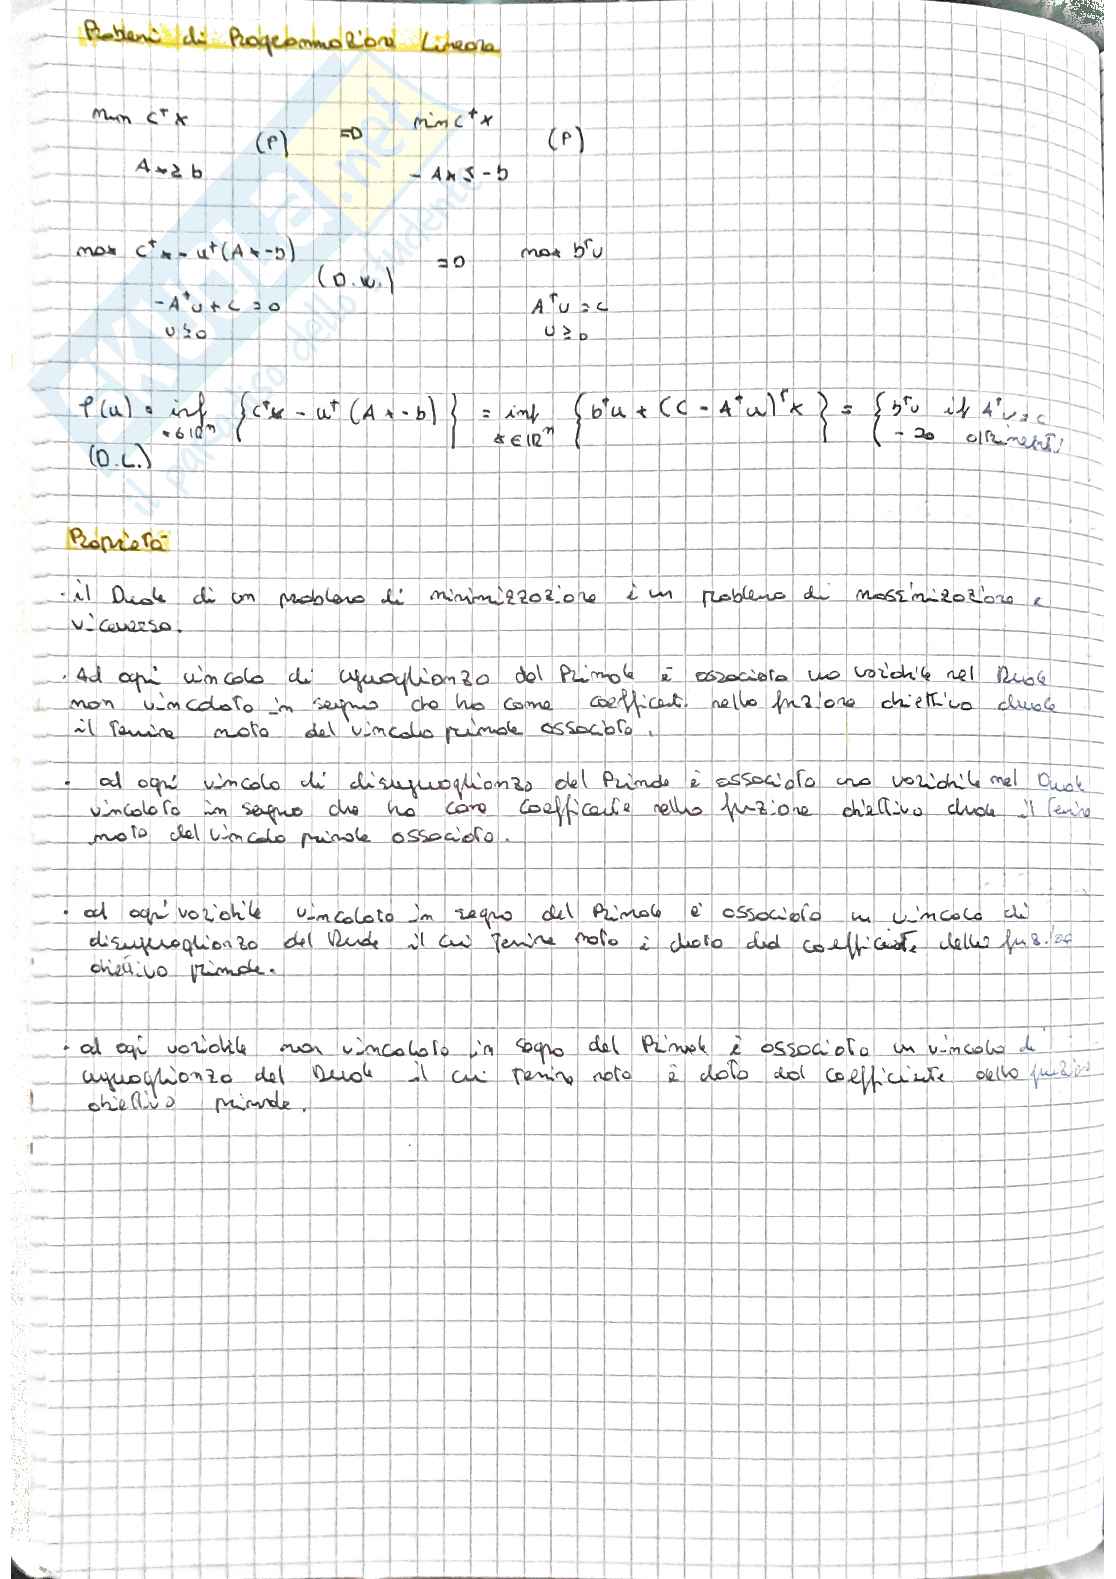 Problemi di Programmazione Lineare
min cᵀx (P) => min cᵀx (P)
Ax ≥ b - Ax ≤ - b
max cᵀx - uᵀ(Ax - b) (D.W.) => max bᵀu
-Aᵀu + c = 0 Aᵀu = c
u ≥ 0 u ≥ 0
φ(u) = inf {cᵀx - uᵀ(Ax - b)} = inf {bᵀu + (c - Aᵀu)ᵀx} = { bᵀu if Aᵀu = c
x ∈ ℝⁿ x ∈ ℝⁿ - ∞ altrimenti
(D.L.)
Proprietà
· il Duale di un problema di minimizzazione è un problema di massimizzazione e
viceversa.
· Ad ogni vincolo di uguaglianza del Primale è associata una variabile nel Duale
non vincolata in segno che ha come coefficienti nella funzione obiettivo duale
il termine noto del vincolo primale associato.
· ad ogni vincolo di disuguaglianza del Primale è associata una variabile nel Duale
vincolata in segno che ha come coefficiente nella funzione obiettivo duale il termine
noto del vincolo primale associato.
· ad ogni variabile vincolata in segno del Primale è associato un vincolo di
disuguaglianza del Duale il cui termine noto è dato dal coefficiente della funzione
obiettivo primale.
· ad ogni variabile non vincolata in segno del Primale è associato un vincolo di
uguaglianza del Duale il cui termine noto è dato dal coefficiente della funzione
obiettivo primale.
SKUOLA.net
il paradiso dello studente